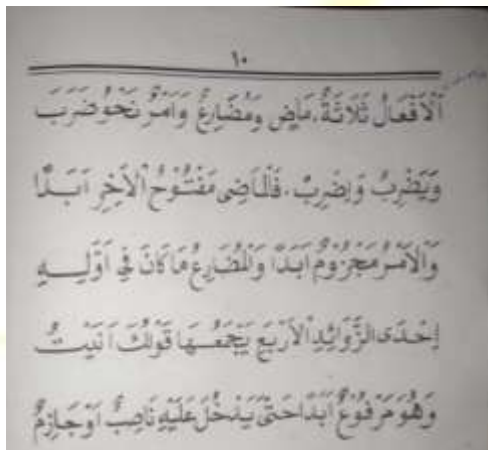 ١٠
اَلْاَفْعَالُ ثَلَاثَةٌ، مَاضٍ وَمُضَارِعٌ وَاَمْرٌ نَحْوُ ضَرَبَ
وَيَضْرِبُ وَاِضْرِبْ. فَالْمَاضِى مَفْتُوْحُ الْاٰخِرِ اَبَدًا
وَالْاَمْرُ مَجْزُوْمٌ اَبَدًا وَالْمُضَارِعُ مَا كَانَ فِى اَوَّلِهِ
اِحْدَى الزَّوَائِدِ الْاَرْبَعِ يَجْمَعُهَا قَوْلُكَ اَنَيْتُ
وَهُوَ مَرْفُوْعٌ اَبَدًا حَتّٰى يَدْخُلَ عَلَيْهِ نَاصِبٌ اَوْ جَازِمٌ